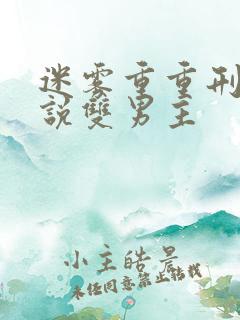 迷雾重重刑
說雙男主
小主皓晨
未经同意禁止转载